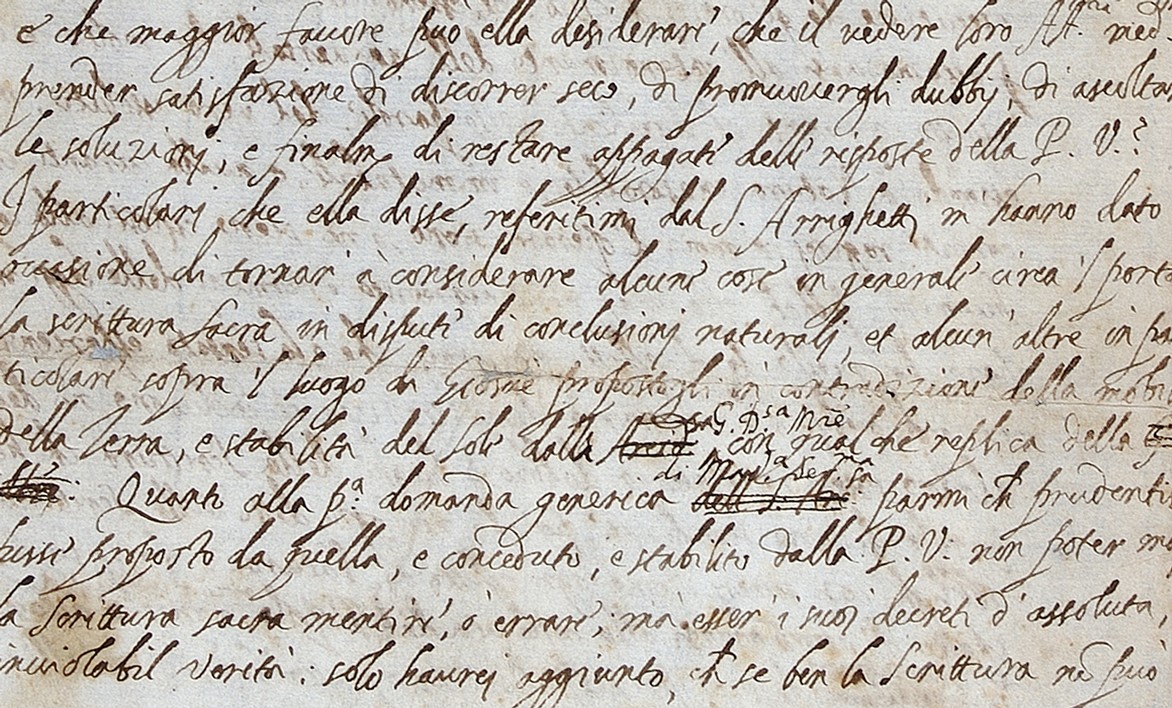 e che maggior favore può ella desiderare, che il vedere loro Alt.
prender satisfazione di discorrer seco, di promuovergli dubbij, di ascolta
le soluzioni, e finalm.e di restare appagate delle risposte della P. V.?
I particolari che ella disse, referitimi dal S. Arrighetti m hanno dato
occasione di tornar à considerare alcune cose in generale circa 'l porta
la scrittura sacra in dispute di conclusioni naturali, et alcun' altre in par
ticolare sopra 'l luogo di Giosuè propostogli in contradizione della mobi
sa G. D.sa M.re
della Terra, e stabilità del Sole dalla con qualche replica della
di M.a Ser.ma
Quanto alla p.a domanda generica parmi ch prudenti
proposto da quella, e conceduto, e stabilito dalla P. V. non poter mai
la Scrittura sacra mentire, ò errare; mà esser i suoi decreti d' assoluta,
inviolabil verità: solo haurei aggiunto, ch se ben la Scrittura nō può